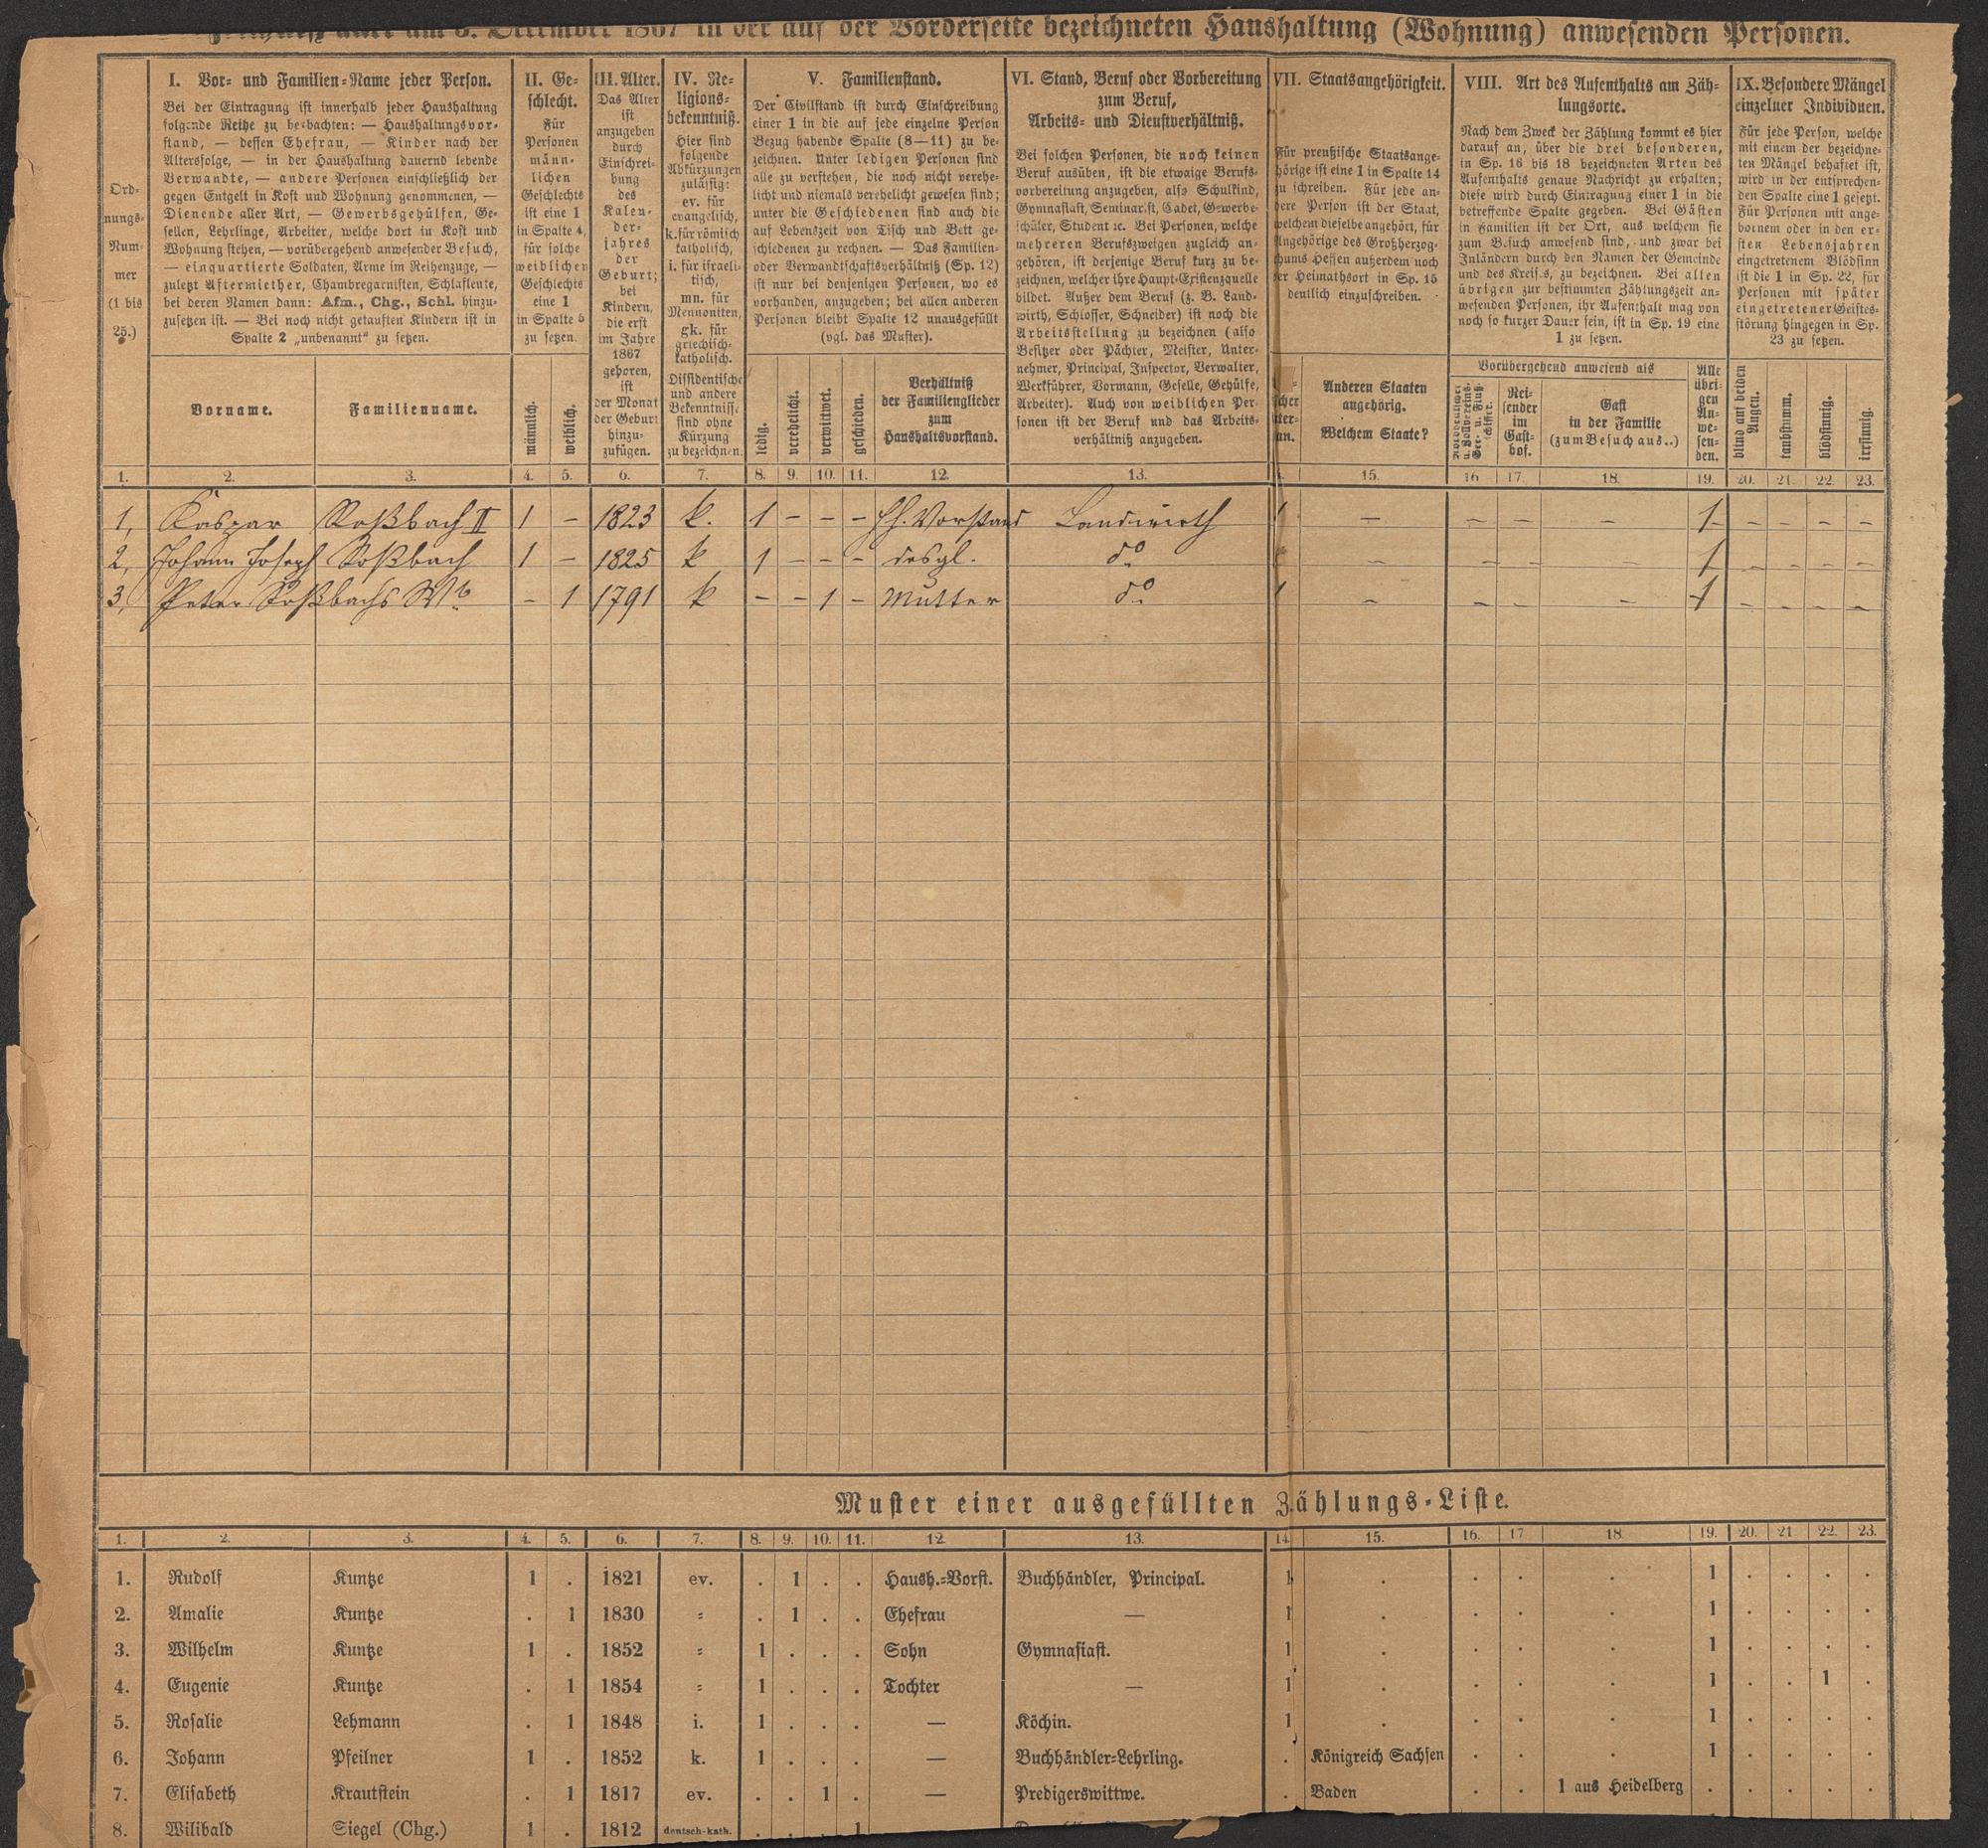 am 3. December 1867 in der auf der Vorderseite bezeichneten Haushaltung (Wohnung) anwesenden Personen.
Ord-
nungs-
Num-
mer
(1 bis
25.)
I. Vor- und Familien-Name jeder Person.
Bei der Eintragung ist innerhalb jeder Haushaltung
folgende Reihe zu beobachten: — Haushaltungsvor-
stand, — dessen Ehefrau, — Kinder nach der
Altersfolge, — in der Haushaltung dauernd lebende
Verwandte, — andere Personen einschließlich der
gegen Entgelt in Kost und Wohnung genommenen, —
Dienende aller Art, — Gewerbsgehülfen, Ge-
sellen, Lehrlinge, Arbeiter, welche dort in Kost und
Wohnung stehen, — vorübergehend anwesender Besuch,
— einquartierte Soldaten, Arme im Reihenzuge, —
zuletzt Aftermiether, Chambregarnisten, Schlafleute,
bei deren Namen dann: Afm., Chg., Schl. hinzu-
zusetzen ist. — Bei noch nicht getauften Kindern ist in
Spalte 2 „unbenannt“ zu setzen.
Vorname.
Familienname.
II. Ge-
schlecht.
Für
Personen
männ-
lichen
Geschlechts
ist eine 1
in Spalte 4,
für solche
weiblichen
Geschlechts
eine 1
in Spalte 5
zu setzen.
männlich.
weiblich.
III. Alter.
Das Alter
ist
anzugeben
durch
Einschrei-
bung
des
Kalen-
der-
jahres
der
Geburt;
bei
Kindern,
die erst
im Jahre
1867
geboren,
ist
der Monat
der Geburt
hinzu-
zufügen.
IV. Re-
ligions-
bekenntniß.
Hier sind
folgende
Abkürzungen
zulässig:
ev. für
evangelisch,
k. für römisch
katholisch,
i. für israeli-
tisch,
mn. für
Mennoniten,
gk. für
griechisch-
katholisch.
Dissidentische
und andere
Bekenntnisse
sind ohne
Kürzung
zu bezeichnen.
V. Familienstand.
Der Civilstand ist durch Einschreibung
einer 1 in die auf jede einzelne Person
Bezug habende Spalte (8—11) zu be-
zeichnen. Unter ledigen Personen sind
alle zu verstehen, die noch nicht verehe-
licht und niemals verehelicht gewesen sind;
unter die Geschiedenen sind auch die
auf Lebenszeit von Tisch und Bett ge-
schiedenen zu rechnen. — Das Familien-
oder Verwandtschaftsverhältniß (Sp. 12)
ist nur bei denjenigen Personen, wo es
vorhanden, anzugeben; bei allen anderen
Personen bleibt Spalte 12 unausgefüllt
(vgl. das Muster).
ledig.
verehelicht.
verwittwet.
geschieden.
Verhältniß
der Familienglieder
zum
Haushaltsvorstand.
VI. Stand, Beruf oder Vorbereitung
zum Beruf,
Arbeits- und Dienstverhältniß.
Bei solchen Personen, die noch keinen
Beruf ausüben, ist die etwaige Berufs-
vorbereitung anzugeben, also Schulkind,
Gymnasiast, Seminarist, Cadet, Gewerbe-
schüler, Student ꝛc. Bei Personen, welche
mehreren Berufszweigen zugleich an-
gehören, ist derjenige Beruf kurz zu be-
zeichnen, welcher ihre Haupt-Existenzquelle
bildet. Außer dem Beruf (z. B. Land-
wirth, Schlosser, Schneider) ist noch die
Arbeitsstellung zu bezeichnen (also
Besitzer oder Pächter, Meister, Unter-
nehmer, Principal, Inspector, Verwalter,
Werkführer, Vormann, Geselle, Gehülfe,
Arbeiter). Auch von weiblichen Per-
sonen ist der Beruf und das Arbeits-
verhältniß anzugeben.
VII. Staatsangehörigkeit.
Für preußische Staatsange-
hörige ist eine 1 in Spalte 14
zu schreiben. Für jede an-
dere Person ist der Staat,
welchem dieselbe angehört, für
Angehörige des Großherzog-
thums Hessen außerdem noch
der Heimathsort in Sp. 15
deutlich einzuschreiben.
Anderen Staaten
angehörig.
Welchem Staate?
VIII. Art des Aufenthalts am Zäh-
lungsorte.
Nach dem Zweck der Zählung kommt es hier
darauf an, über die drei besonderen,
in Sp. 16 bis 18 bezeichneten Arten des
Aufenthalts genaue Nachricht zu erhalten;
diese wird durch Eintragung einer 1 in die
betreffende Spalte gegeben. Bei Gästen
in Familien ist der Ort, aus welchem sie
zum Besuch anwesend sind, und zwar bei
Inländern durch den Namen der Gemeinde
und des Kreises, zu bezeichnen. Bei allen
übrigen zur bestimmten Zählungszeit an-
wesenden Personen, ihr Aufenthalt mag von
noch so kurzer Dauer sein, ist in Sp. 19 eine
1 zu setzen.
Vorübergehend anwesend als
Rei-
sender
im
Gast-
hof.
Gast
in der Familie
(zum Besuch aus..)
Alle
übri-
gen
An-
we-
sen-
den.
IX. Besondere Mängel
einzelner Individuen.
Für jede Person, welche
mit einem der bezeichne-
ten Mängel behaftet ist,
wird in der entsprechen-
den Spalte eine 1 gesetzt.
Für Personen mit ange-
bornem oder in den er-
sten Lebensjahren
eingetretenem Blödsinn
ist die 1 in Sp. 22, für
Personen mit später
eingetretener Geistes-
störung hingegen in Sp.
23 zu setzen.
blind auf beiden Augen.
taubstumm.
blödsinnig.
irrsinnig.
1. 2. 3. 4. 5. 6. 7. 8. 9. 10. 11. 12. 13. 15. 16 17. 18. 19. 20. 21. 22. 23.
1, Kaspar Roßbach II 1 – 1823 k. 1 – – – Hh. Vorstand Landwirth 1 – – – – 1 – – – –
2, Johann Joseph Roßbach 1 – 1825 k 1 – – – desgl. do – – – 1 – – – –
3, Peter Roßbachs Wb. – 1 1791 k – – 1 – Mutter do 1 – – – – 1 – – – –
Muster einer ausgefüllten Zählungs-Liste.
1. 2. 3. 4. 5. 6. 7. 8. 9. 10. 11. 12. 13. 14 15. 16. 17 18. 19. 20. 21 22. 23.
1. Rudolf Kuntze 1 . 1821 ev. . 1 . . Haush.-Vorst. Buchhändler, Principal. 1 . . . . 1 . . . .
2. Amalie Kuntze . 1 1830 = . 1 . . Ehefrau — 1 . . . . 1 . . . .
3. Wilhelm Kuntze 1 . 1852 = 1 . . . Sohn Gymnasiast. 1 . . . . 1 . . . .
4. Eugenie Kuntze . 1 1854 = 1 . . . Tochter — 1 . . . . 1 . . 1 .
5. Rosalie Lehmann . 1 1848 i. 1 . . . — Köchin. 1 . . . . 1 . . . .
6. Johann Pfeilner 1 . 1852 k. 1 . . . — Buchhändler-Lehrling. . Königreich Sachsen . . . 1 . . . .
7. Elisabeth Krautstein . 1 1817 ev. . . 1 . — Predigerswittwe. . Baden . . 1 aus Heidelberg . . . . .
8. Wilibald Siegel (Chg.) 1 . 1812 deutsch-kath. . . . 1